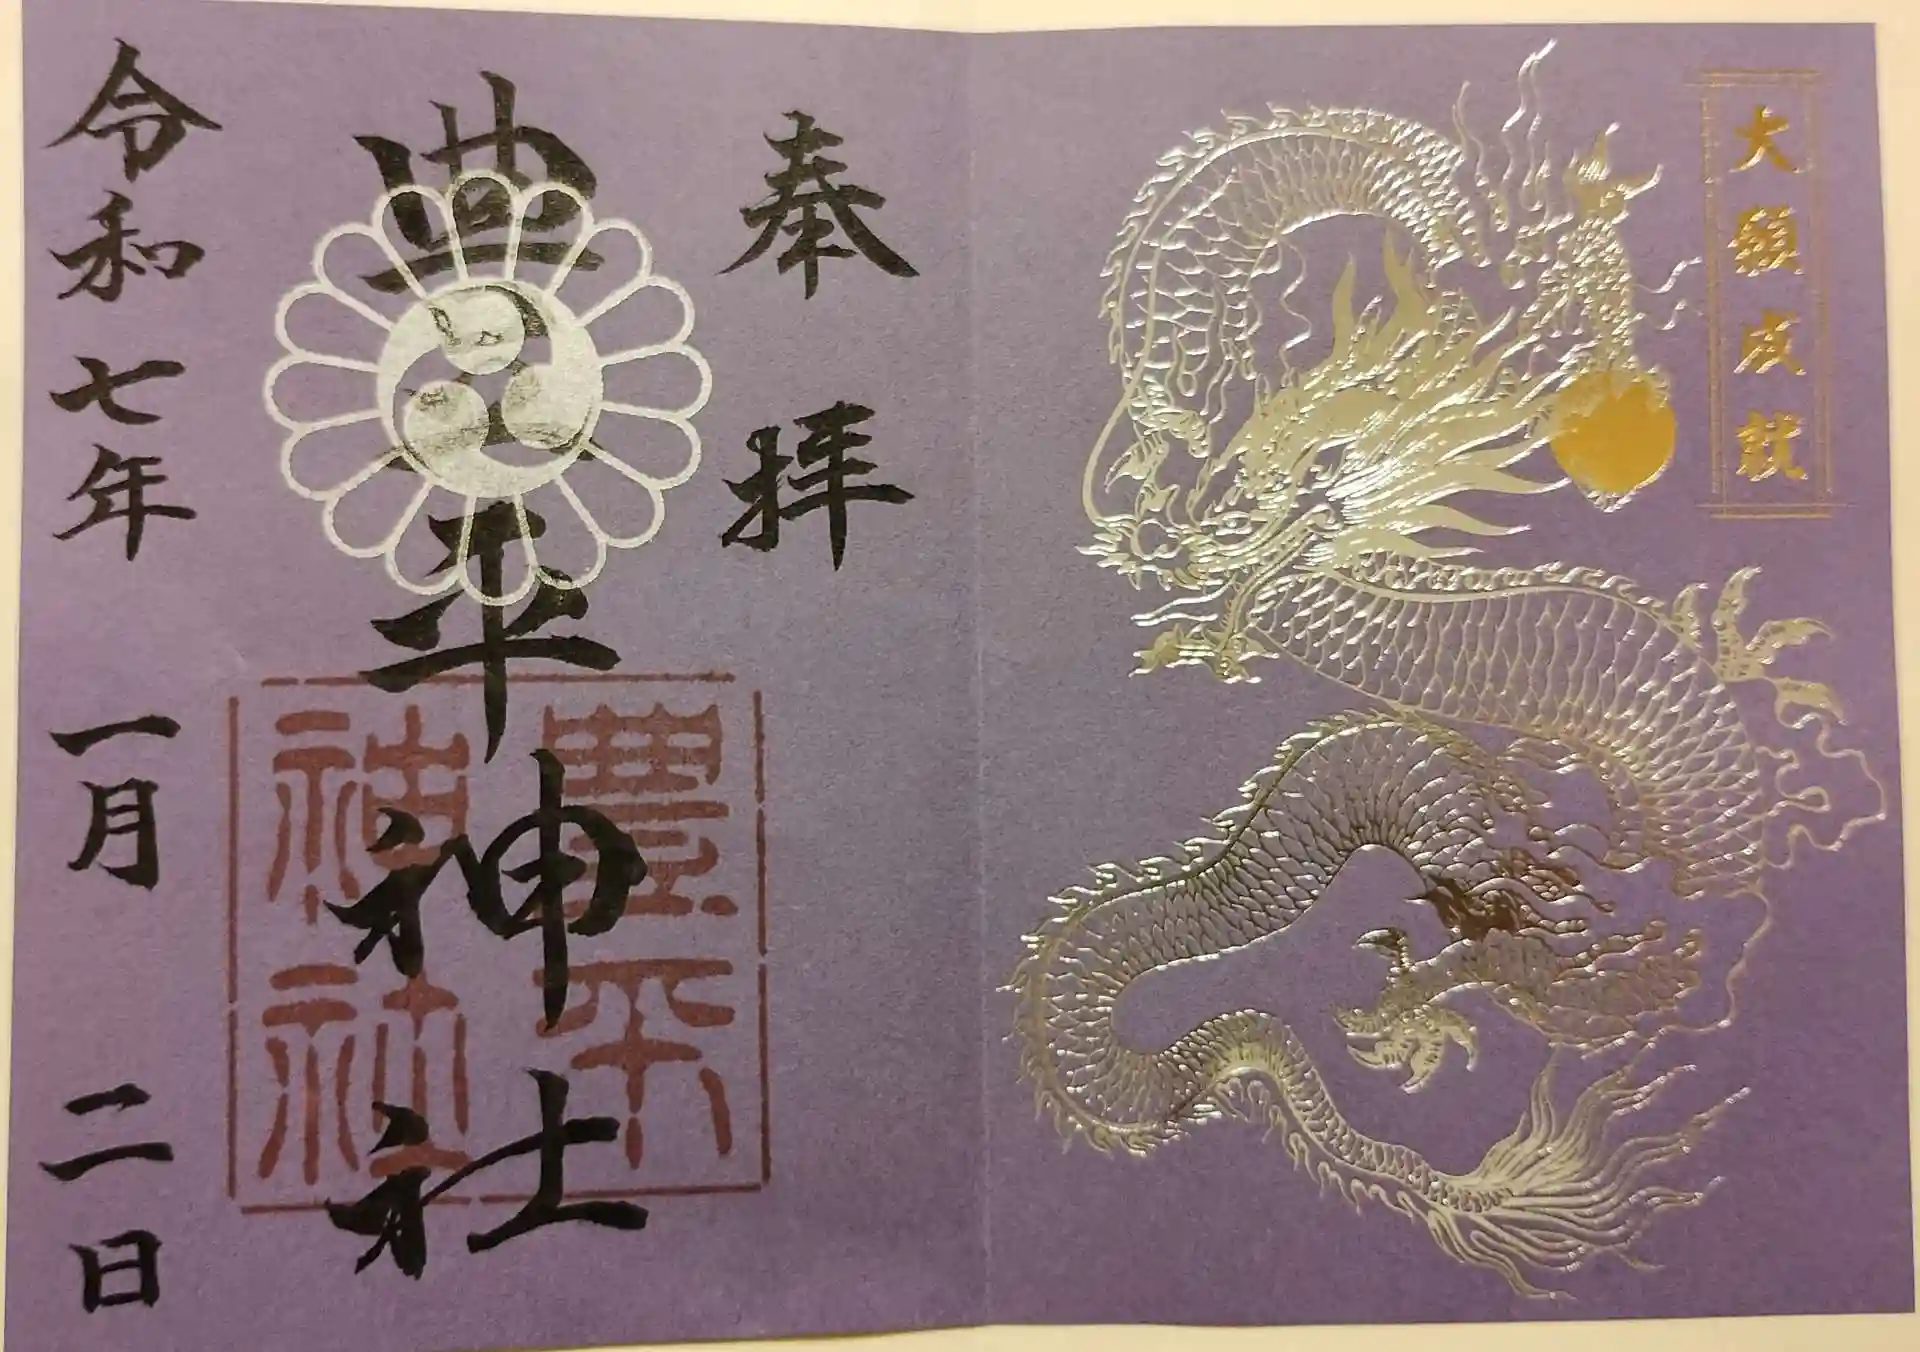 大願成就
奉拝
豊平神社
豊平
神社
令和七年一月二日